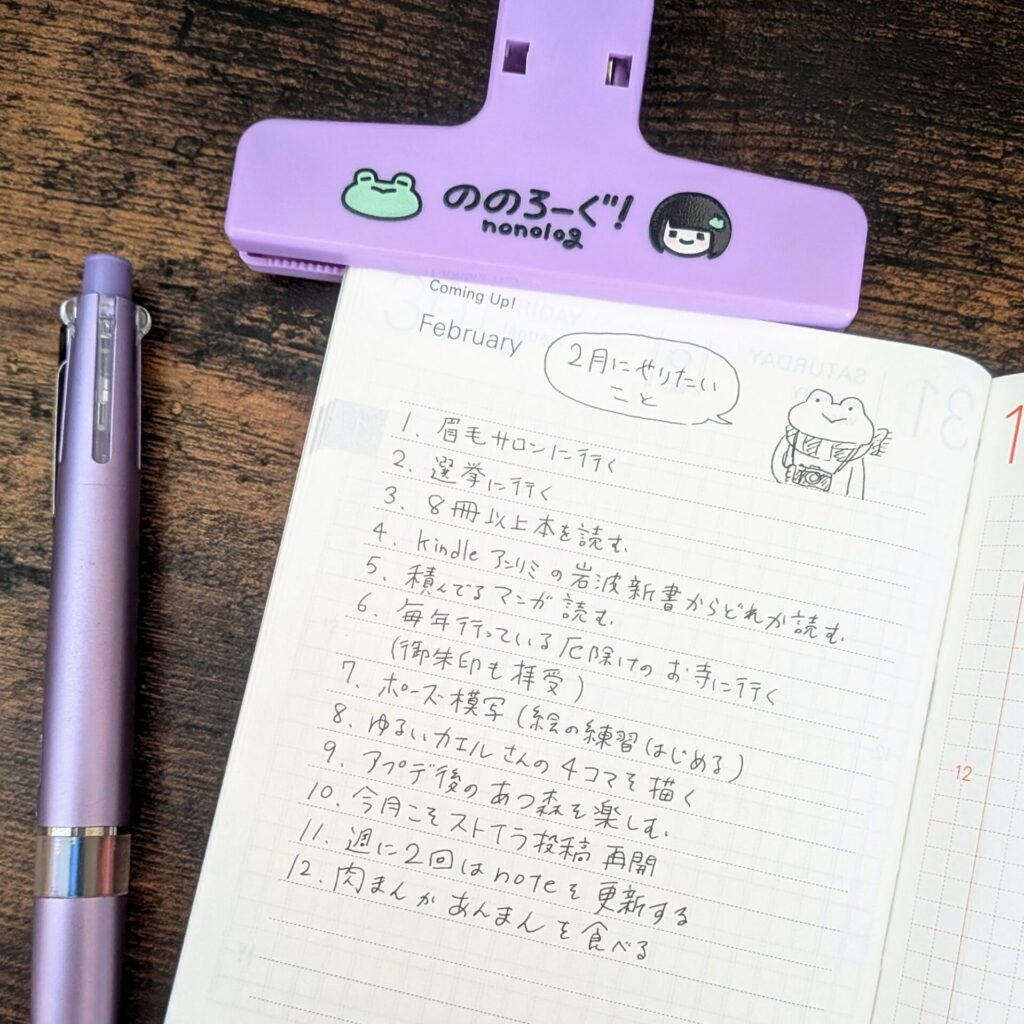 ののろーぐ!
nonolog
Coming Up!
February
2月にやりたい
こと
1. 眉毛サロンに行く
2. 選挙に行く
3. 8冊以上本を読む.
4. kindle アンリミの岩波新書からどれか読む.
5. 積んでるマンガ読む.
6. 毎年行っている厄除けのお寺に行く
(御朱印も拝受)
7. ポーズ模写(絵の練習はじめる)
8. ゆるいカエルさんの4コマを描く
9. アプデ後のあつ森を楽しむ.
10. 今月こそストイラ投稿再開
11. 週に2回はnoteを更新する
12. 肉まんかあんまんを食べる
1
12